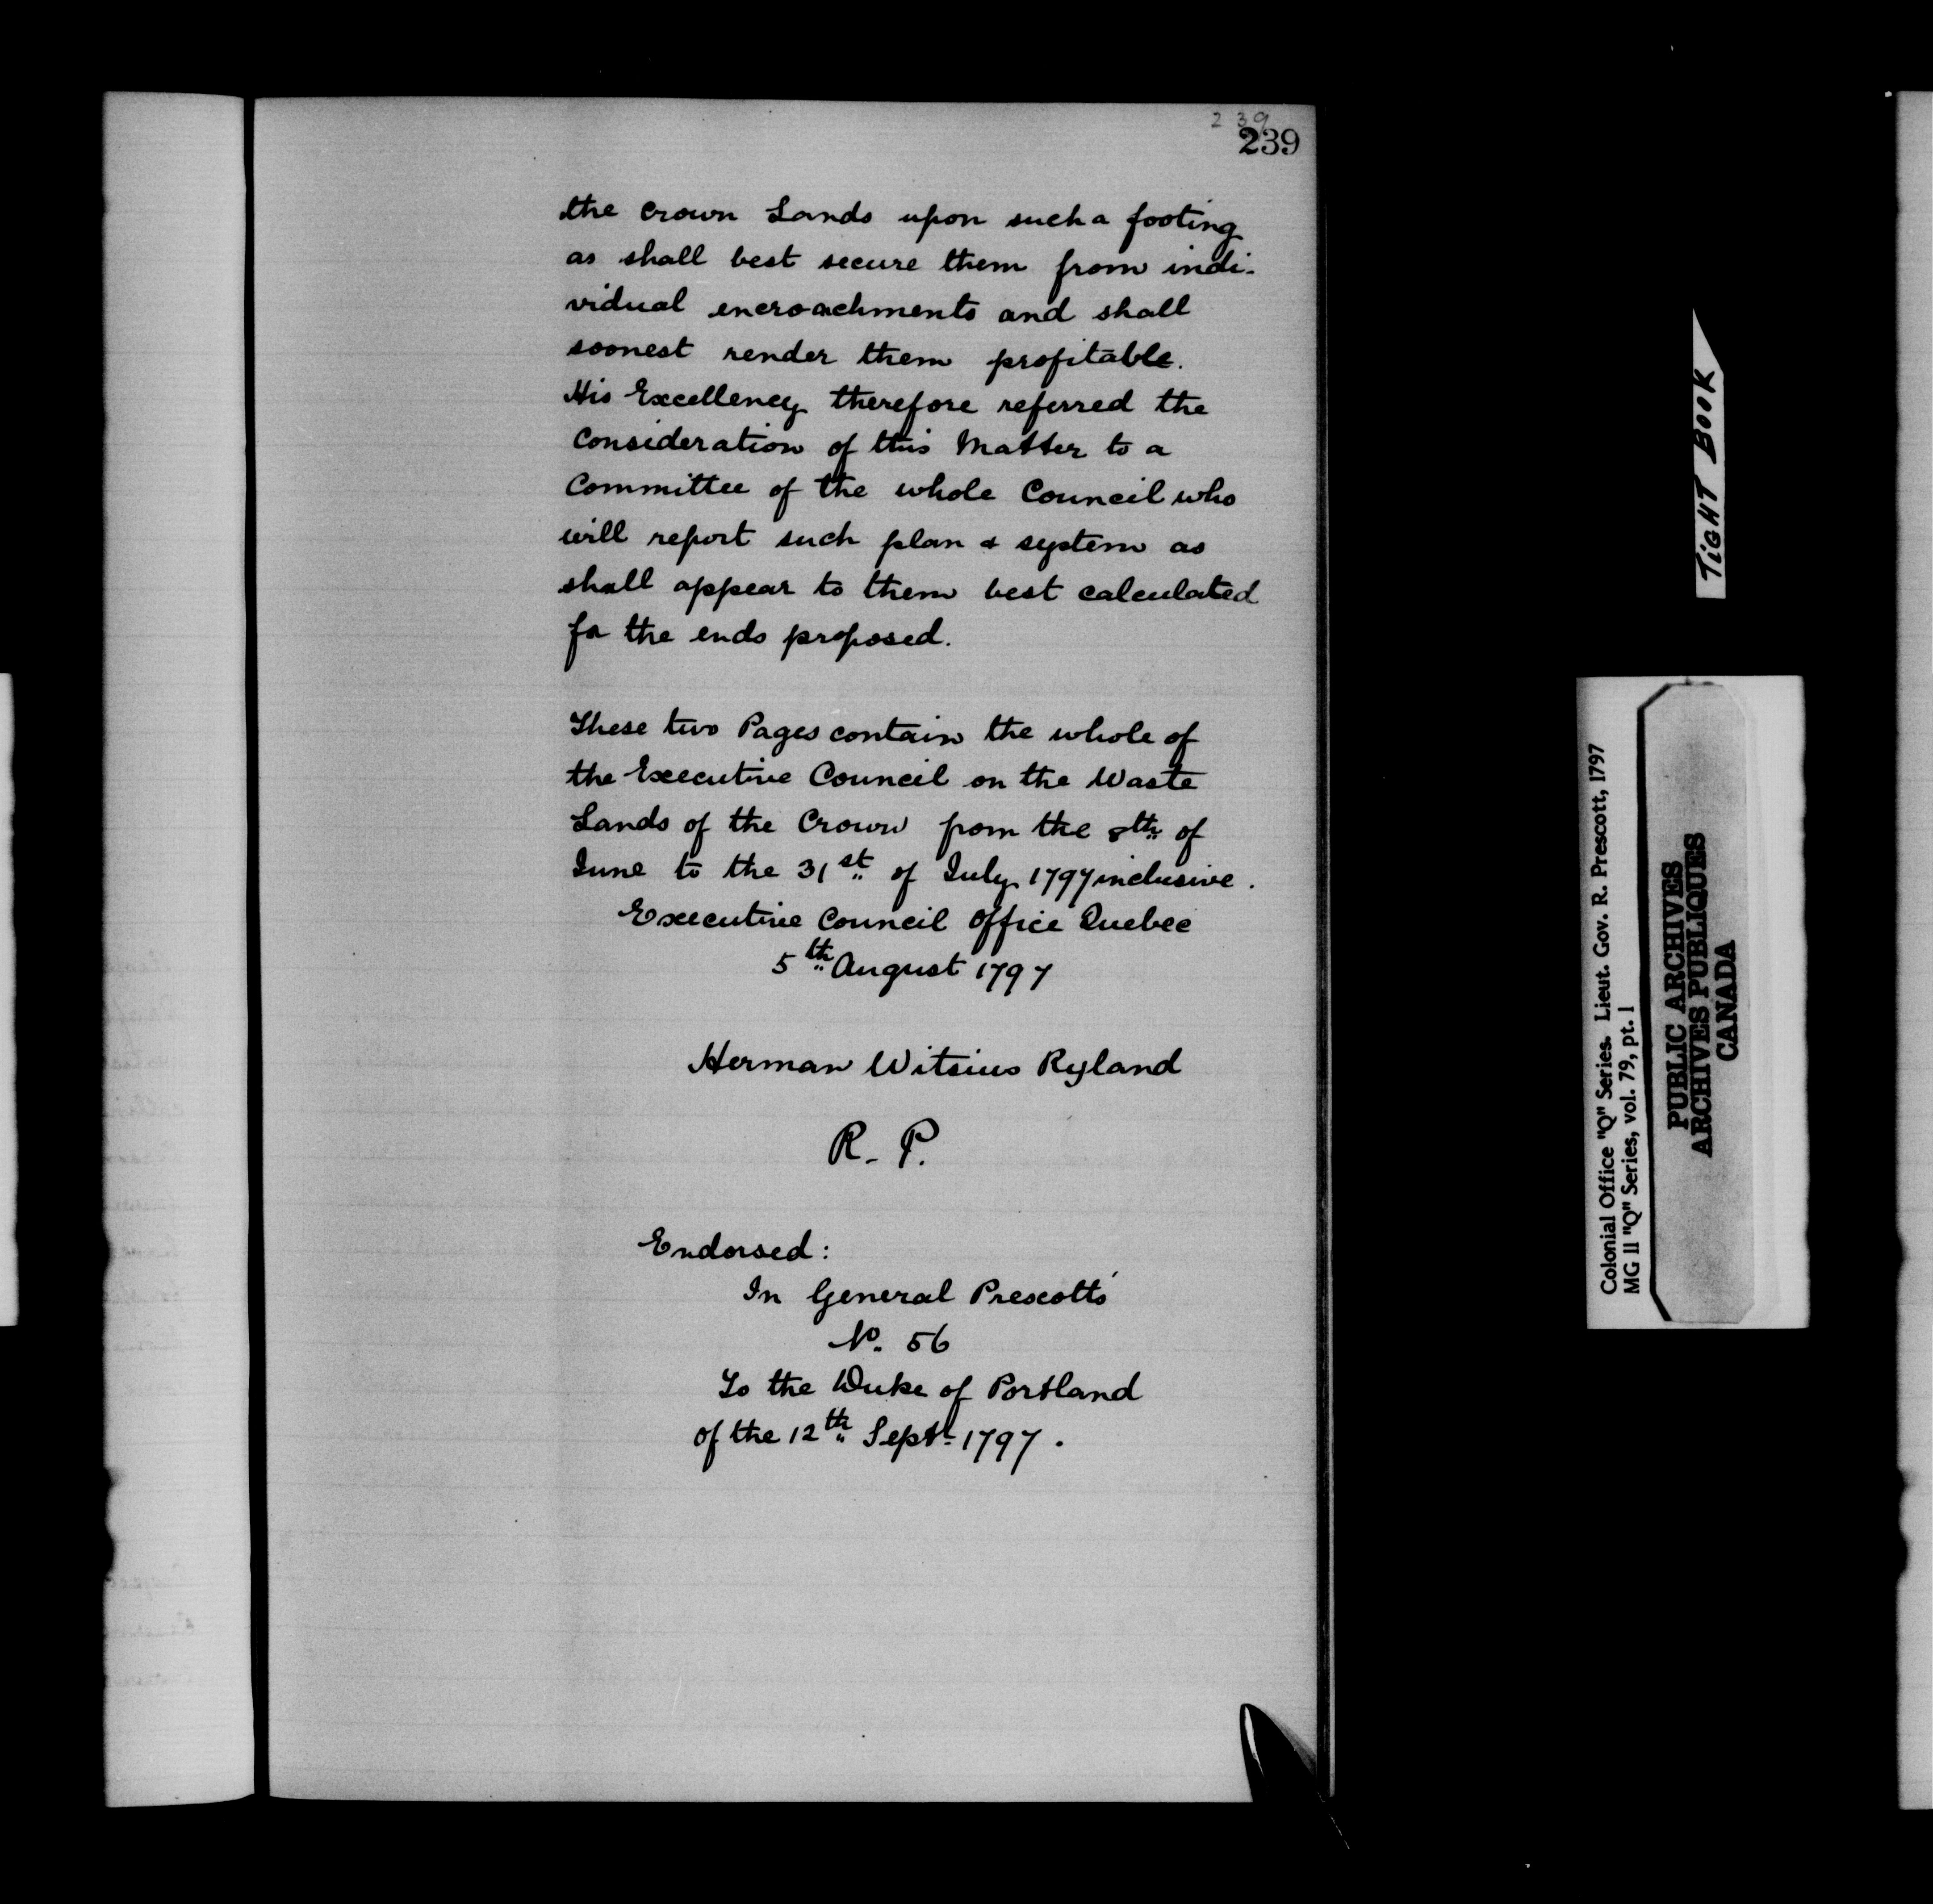 239
239
the Crown Lands upon such a footing
as shall best secure them from indi-
vidual encroachments and shall
soonest render them profitable.
His Excellency therefore referred the
Consideration of this Matter to a
Committee of the whole Council who
will report such plan & system as
shall appear to them best calculated
for the ends proposed.
These two Pages contain the whole of
the Executive Council on the Waste
Lands of the Crown from the 8th of
June to the 31st of July 1797 inclusive.
Executive Council Office Quebec
5th August 1797
Herman Witsius Ryland
R. P.
Endorsed:
In General Prescott's
No. 56
To the Duke of Portland
of the 12th Sept. 1797.
TIGHT BOOK
Colonial Office "Q" Series. Lieut. Gov. R. Prescott, 1797
MG 11 "Q" Series, vol. 79, pt. 1
PUBLIC ARCHIVES
ARCHIVES PUBLIQUES
CANADA